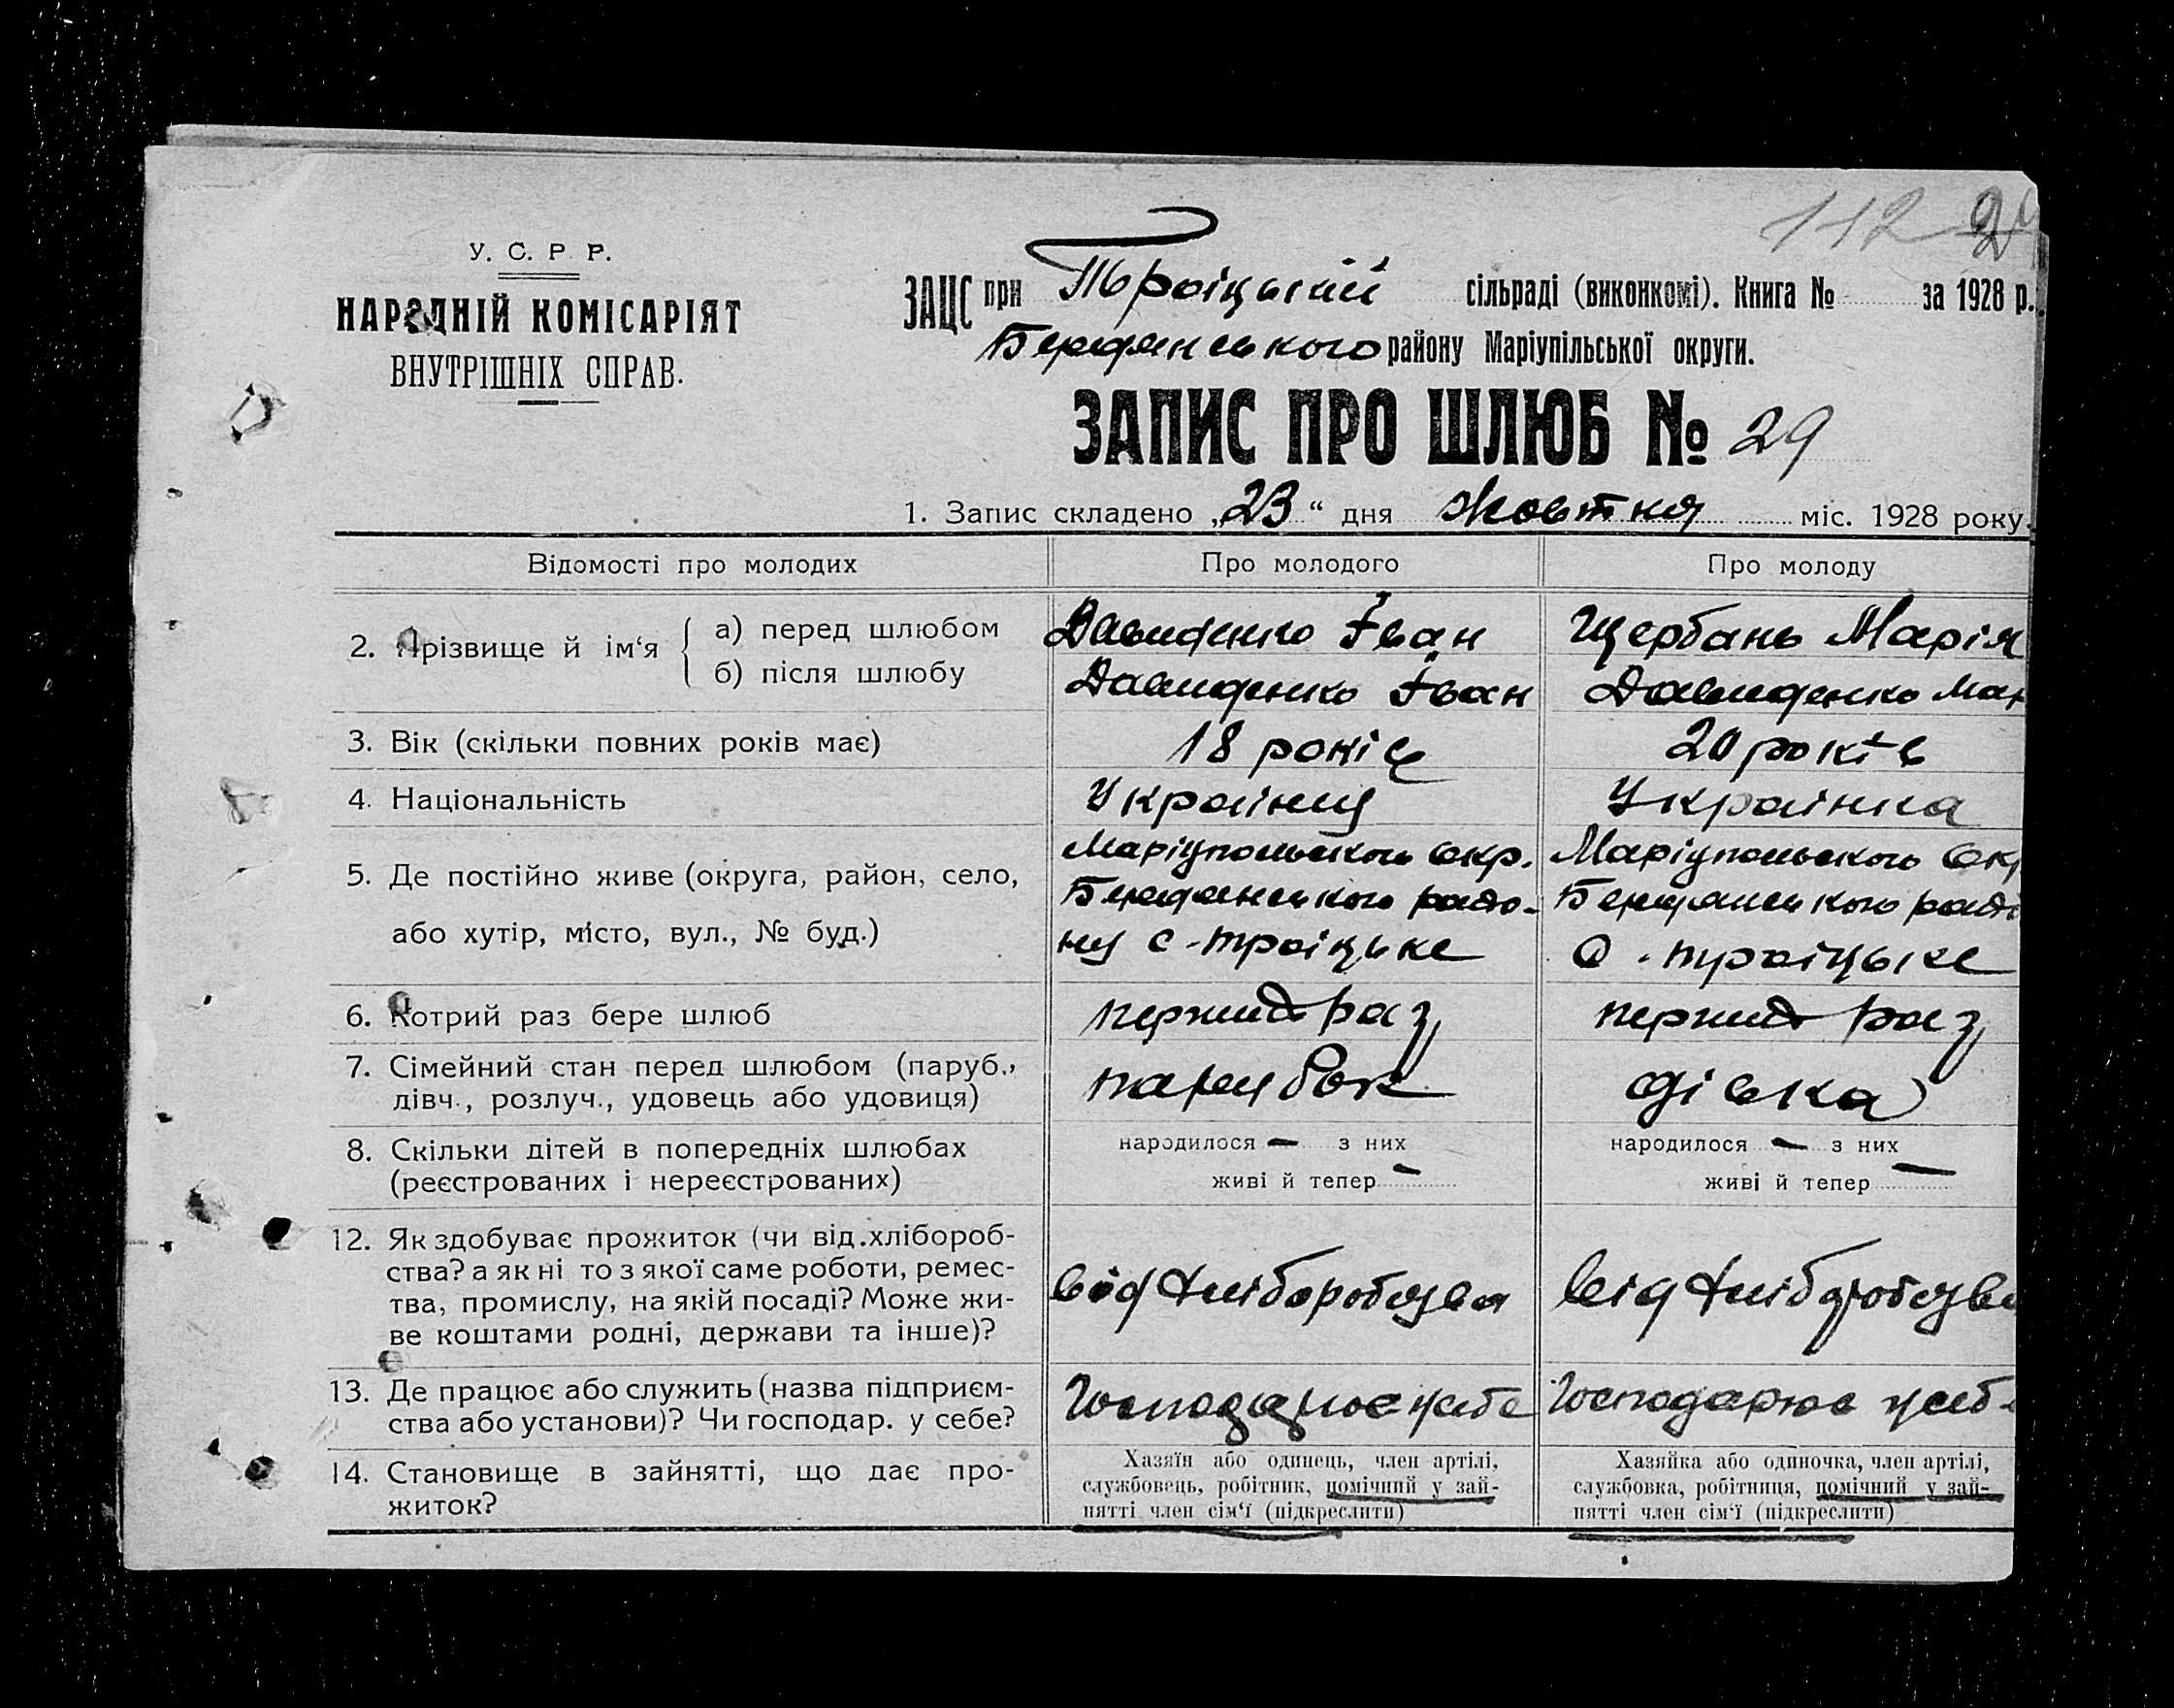 112 2
У. С. Р. Р.
НАРОДНІЙ КОМІСАРІЯТ
ВНУТРІШНІХ СПРАВ.
ЗАЦС при Троіцькій сільраді (виконкомі). Книга № за 1928 р.
Бердянського району Маріупільської округи.
ЗАПИС ПРО ШЛЮБ № 29
1. Запис складено „23“ дня Жовтня міс. 1928 року.
Відомості про молодих Про молодого Про молоду
2. Прізвище й ім‘я { а) перед шлюбом Давиденко Іван Щербань Марія
б) після шлюбу Давиденко Іван Давиденко Мар
3. Вік (скільки повних років має) 18 років 20 років
4. Національність Украінец Украінка
5. Де постійно живе (округа, район, село, Маріупольского Окр. Маріупольского Окр
Бердянського райо- Бердянського райо
або хутір, місто, вул., № буд.) ну с-Троіцьке с-Троіцьке
6. Котрий раз бере шлюб перший раз перший раз
7. Сімейний стан перед шлюбом (паруб., парубок дівка
дівч., розлуч., удовець або удовиця)
8. Скільки дітей в попередніх шлюбах народилося — з них народилося — з них
(реєстрованих і нереєстрованих) живі й тепер — живі й тепер —
12. Як здобуває прожиток (чи від.хлібороб-
ства? а як ні то з якої саме роботи, ремес- від хліборобства від хліборобства
тва, промислу, на якій посаді? Може жи-
ве коштами родні, держави та інше)?
13. Де працює або служить (назва підприєм- Господарює у себе Господарює у себ
ства або установи)? Чи господар. у себе?
14. Становище в зайнятті, що дає про- Хазяїн або одинець, член артілі, Хазяйка або одиночка, член артілі,
житок? службовець, робітник, помічний у зай- службовка, робітниця, помічний у зай-
нятті член сім‘ї (підкреслити) нятті член сім‘ї (підкреслити)